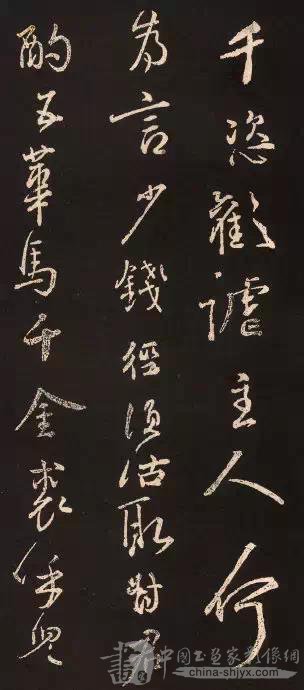 千恣歡謔主人何
為言少錢徑須沽取對君
酌五華馬千金裘呼兒
中国书画家影像网
www.china-shjyx.com